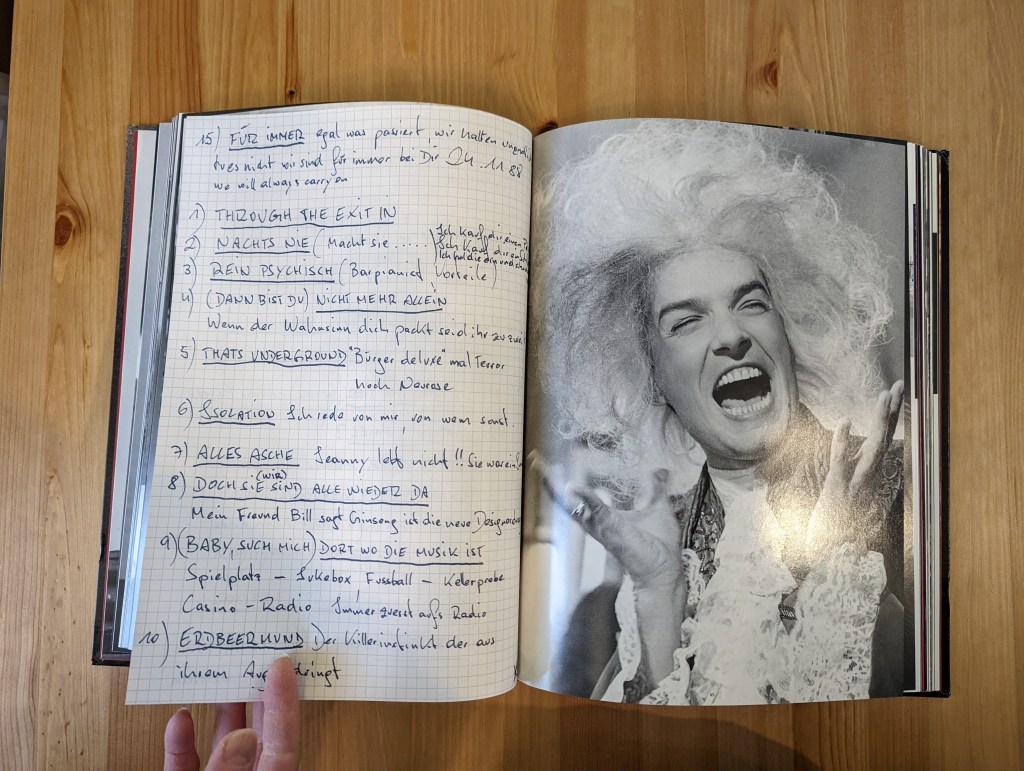 15) FÜR IMMER egal was passiert, wir halten
wir sind für immer bei Dir 24.11.88
we will always carry on
1) THROUGH THE EXIT IN
2) NACHTS NIE (Macht sie .....) Ich kauf dir einen
Ich kauf dir
Ich hol die
3) REIN PSYCHISCH (Barpianist, Vorteile)
4) (DANN BIST DU) NICHT MEHR ALLEIN
Wenn der Wahnsinn dich packt seid ihr zu zweit
5) THATS UNDERGROUND "Bürger deluxe" mal Terror
noch Neurose
6) ISOLATION Ich rede von mir, von wem sonst
7) ALLES ASCHE Jeanny lebt nicht!! Sie war
8) DOCH SIE (WIR) SIND ALLE WIEDER DA
Mein Freund Bill sagt Ginseng ist die neue
9) (BABY, SUCH MICH) DORT WO DIE MUSIK IST
Spielplatz – Jukebox, Fussball – Kelerprobe
Casino – Radio Immer zuerst aufs Radio
10) ERDBEERMUND Der Killerinstinkt der aus
ihrem